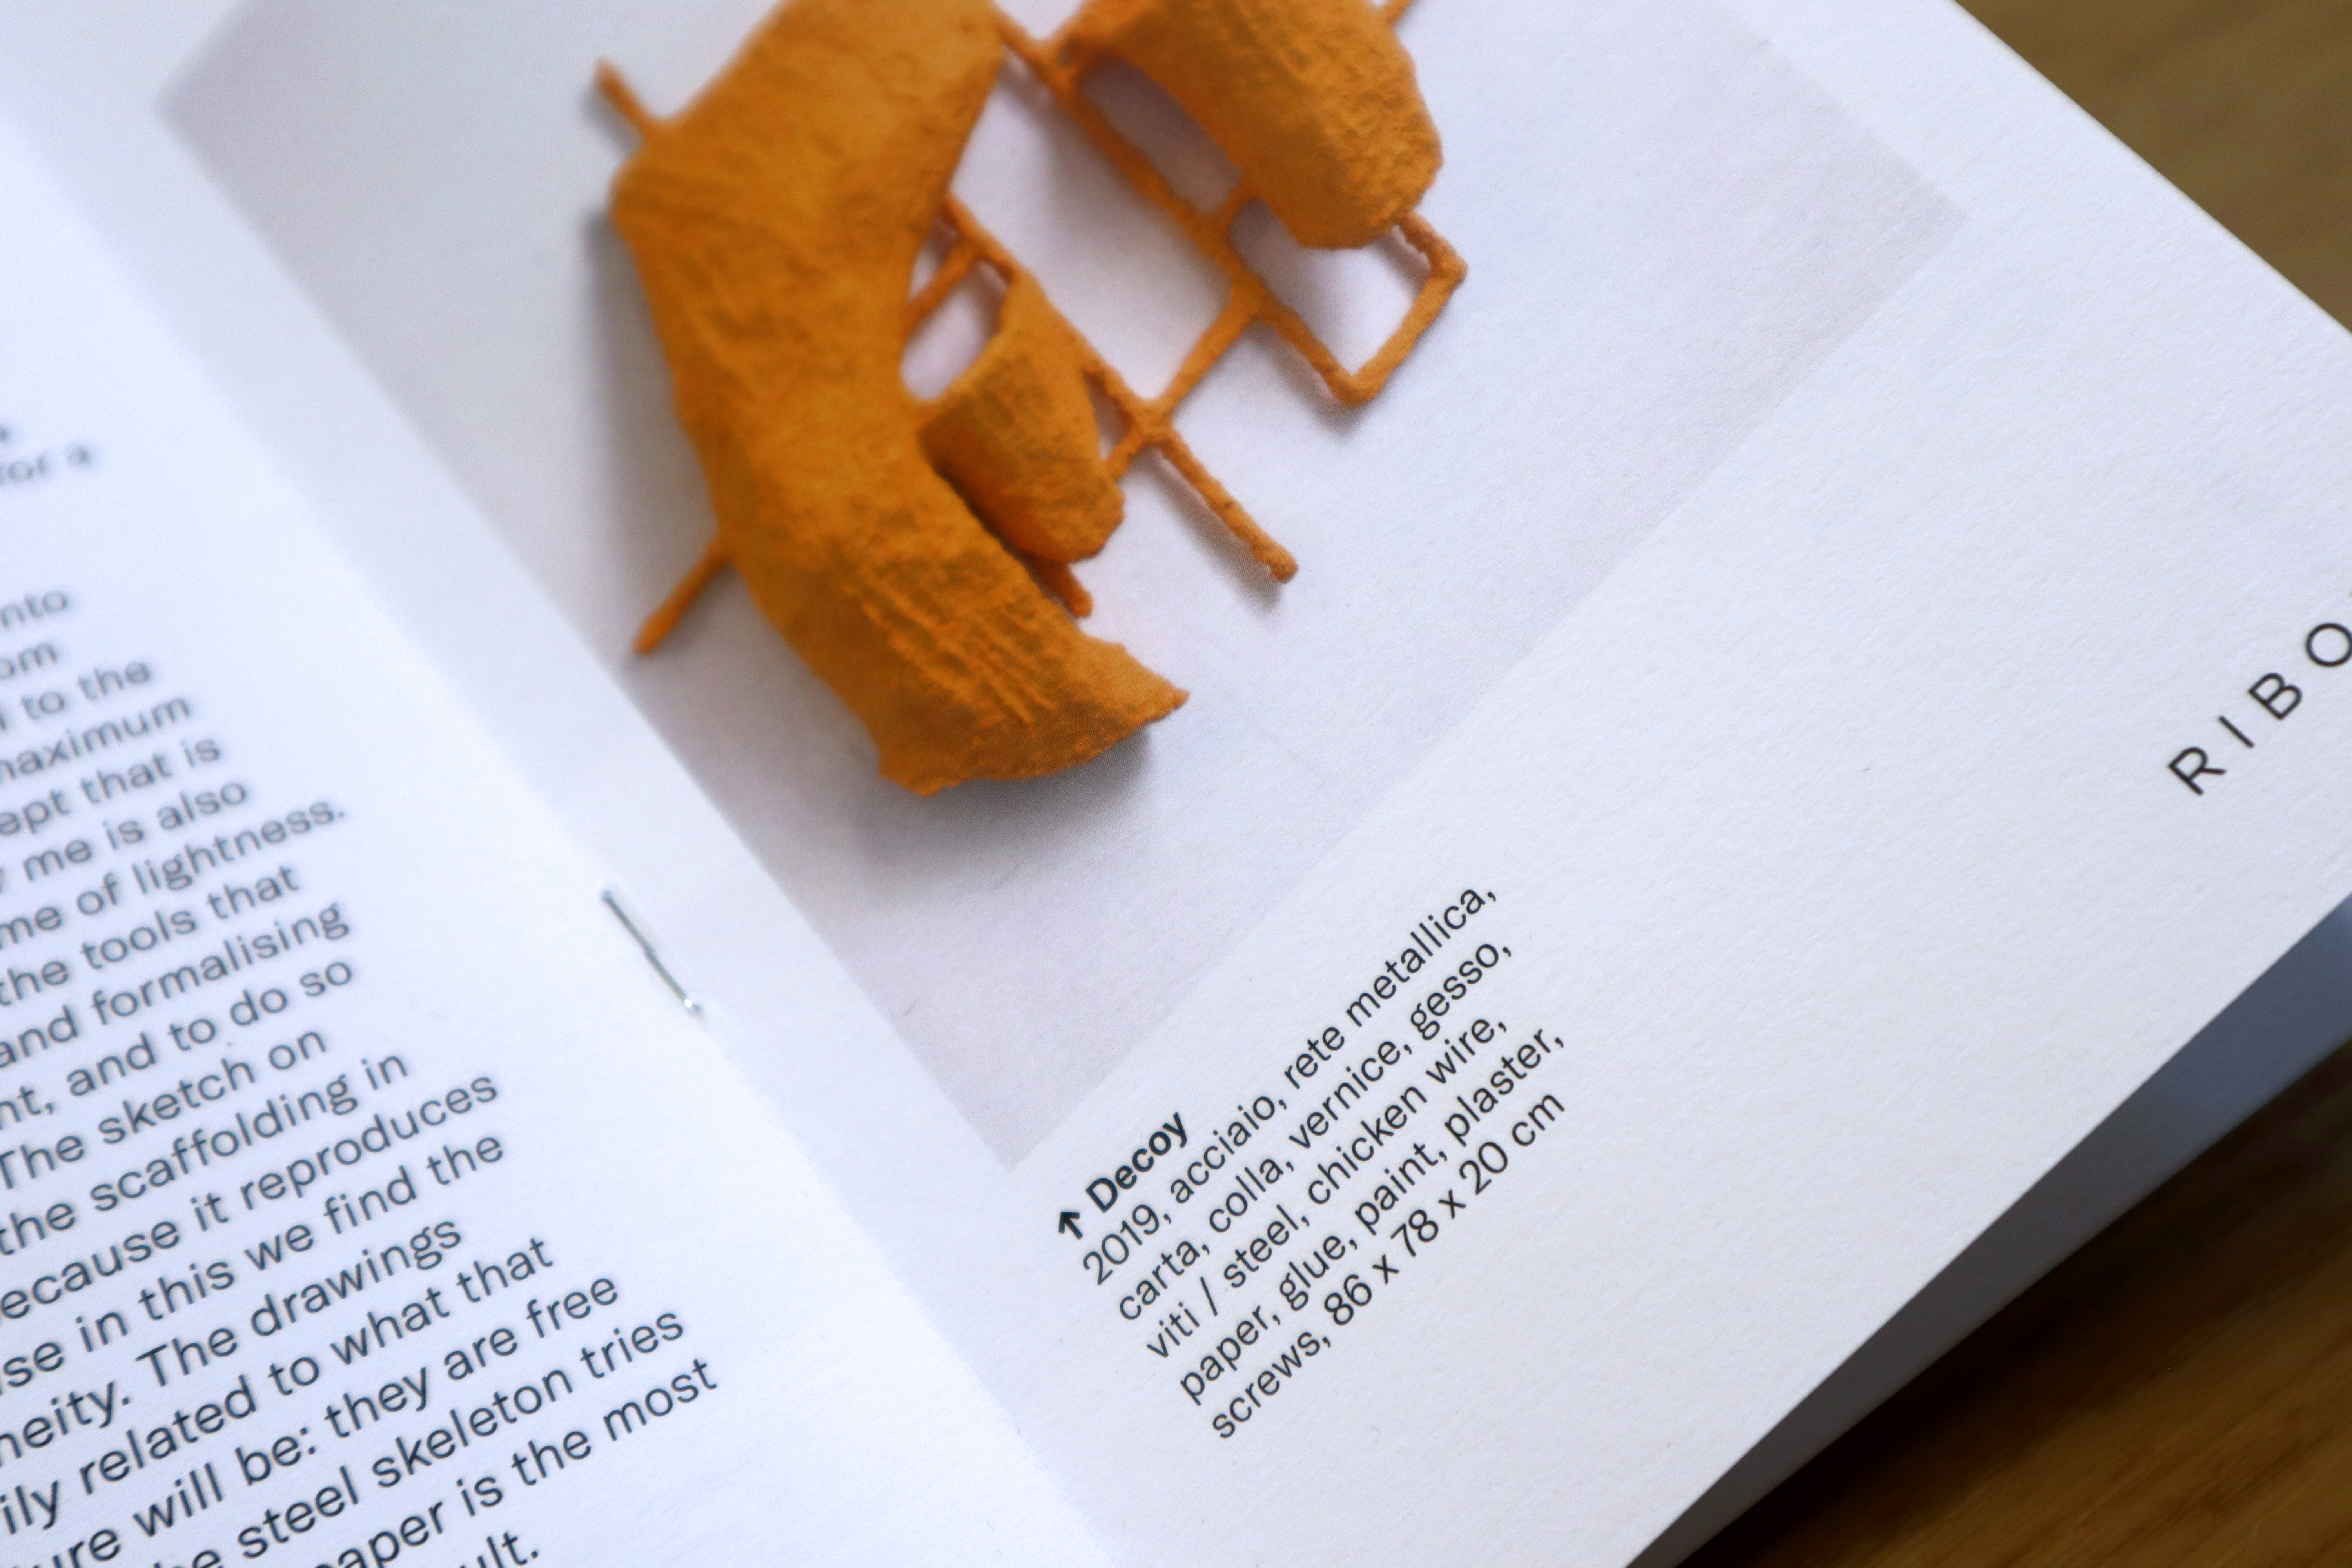 for a
to the
maximum
that is
me is also
of lightness.
the tools that
and formalising
and to do so
The sketch on
the scaffolding in
because it reproduces
in this we find the
The drawings
related to what that
will be: they are free
steel skeleton tries
paper is the most
↑ Decoy
2019, acciaio, rete metallica,
carta, colla, vernice, gesso,
viti / steel, chicken wire,
paper, glue, paint, plaster,
screws, 86 x 78 x 20 cm
RIBO